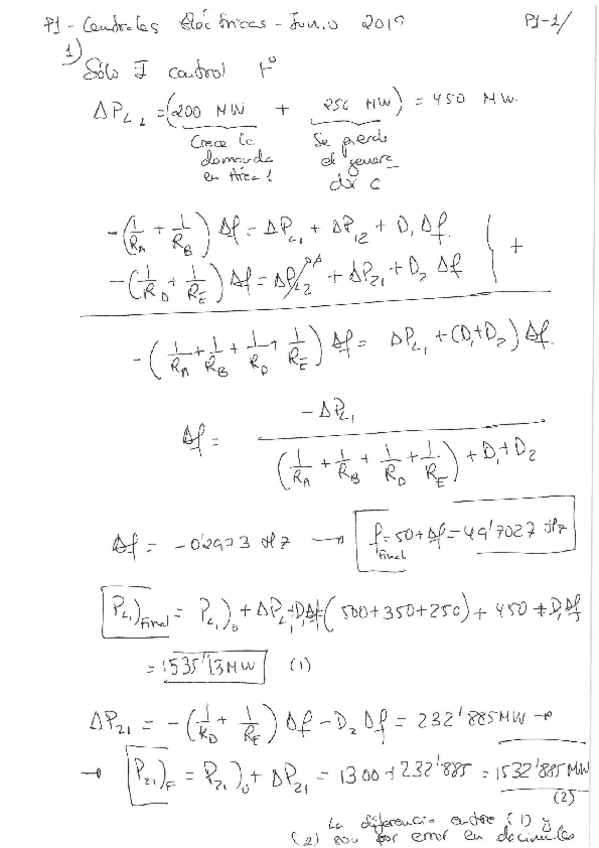 P1 - Centrales Eléctricas - Junio 2019 P1-1/
1)
Sólo I control 1º
ΔP_L1 = (200 MW + 250 MW) = 450 MW.
Crece la demanda en Área 1
Se pierde el generador C
-(1/R_A + 1/R_B) Δf = ΔP_L1 + ΔP_12 + D_1 Δf
-(1/R_D + 1/R_E) Δf = ΔP_L2 + ΔP_21 + D_2 Δf } +
-(1/R_A + 1/R_B + 1/R_D + 1/R_E) Δf = ΔP_L1 + (D_1+D_2) Δf
Δf = -ΔP_L1 / ((1/R_A + 1/R_B + 1/R_D + 1/R_E) + D_1 + D_2)
Δf = -0'2973 Hz → f_Final = 50 + Δf = 49'7027 Hz
P_L1)_Final = P_L1)_0 + ΔP_L1 + D_1 Δf = (500+350+250) + 450 + D_1 Δf
= 1535'13 MW (1)
ΔP_21 = -(1/R_D + 1/R_E) Δf - D_2 Δf = 232'885 MW →
→ P_21)_F = P_21)_0 + ΔP_21 = 1300 + 232'885 = 1532'885 MW
(2)
La diferencia entre (1) y
(2) son por error en decimales